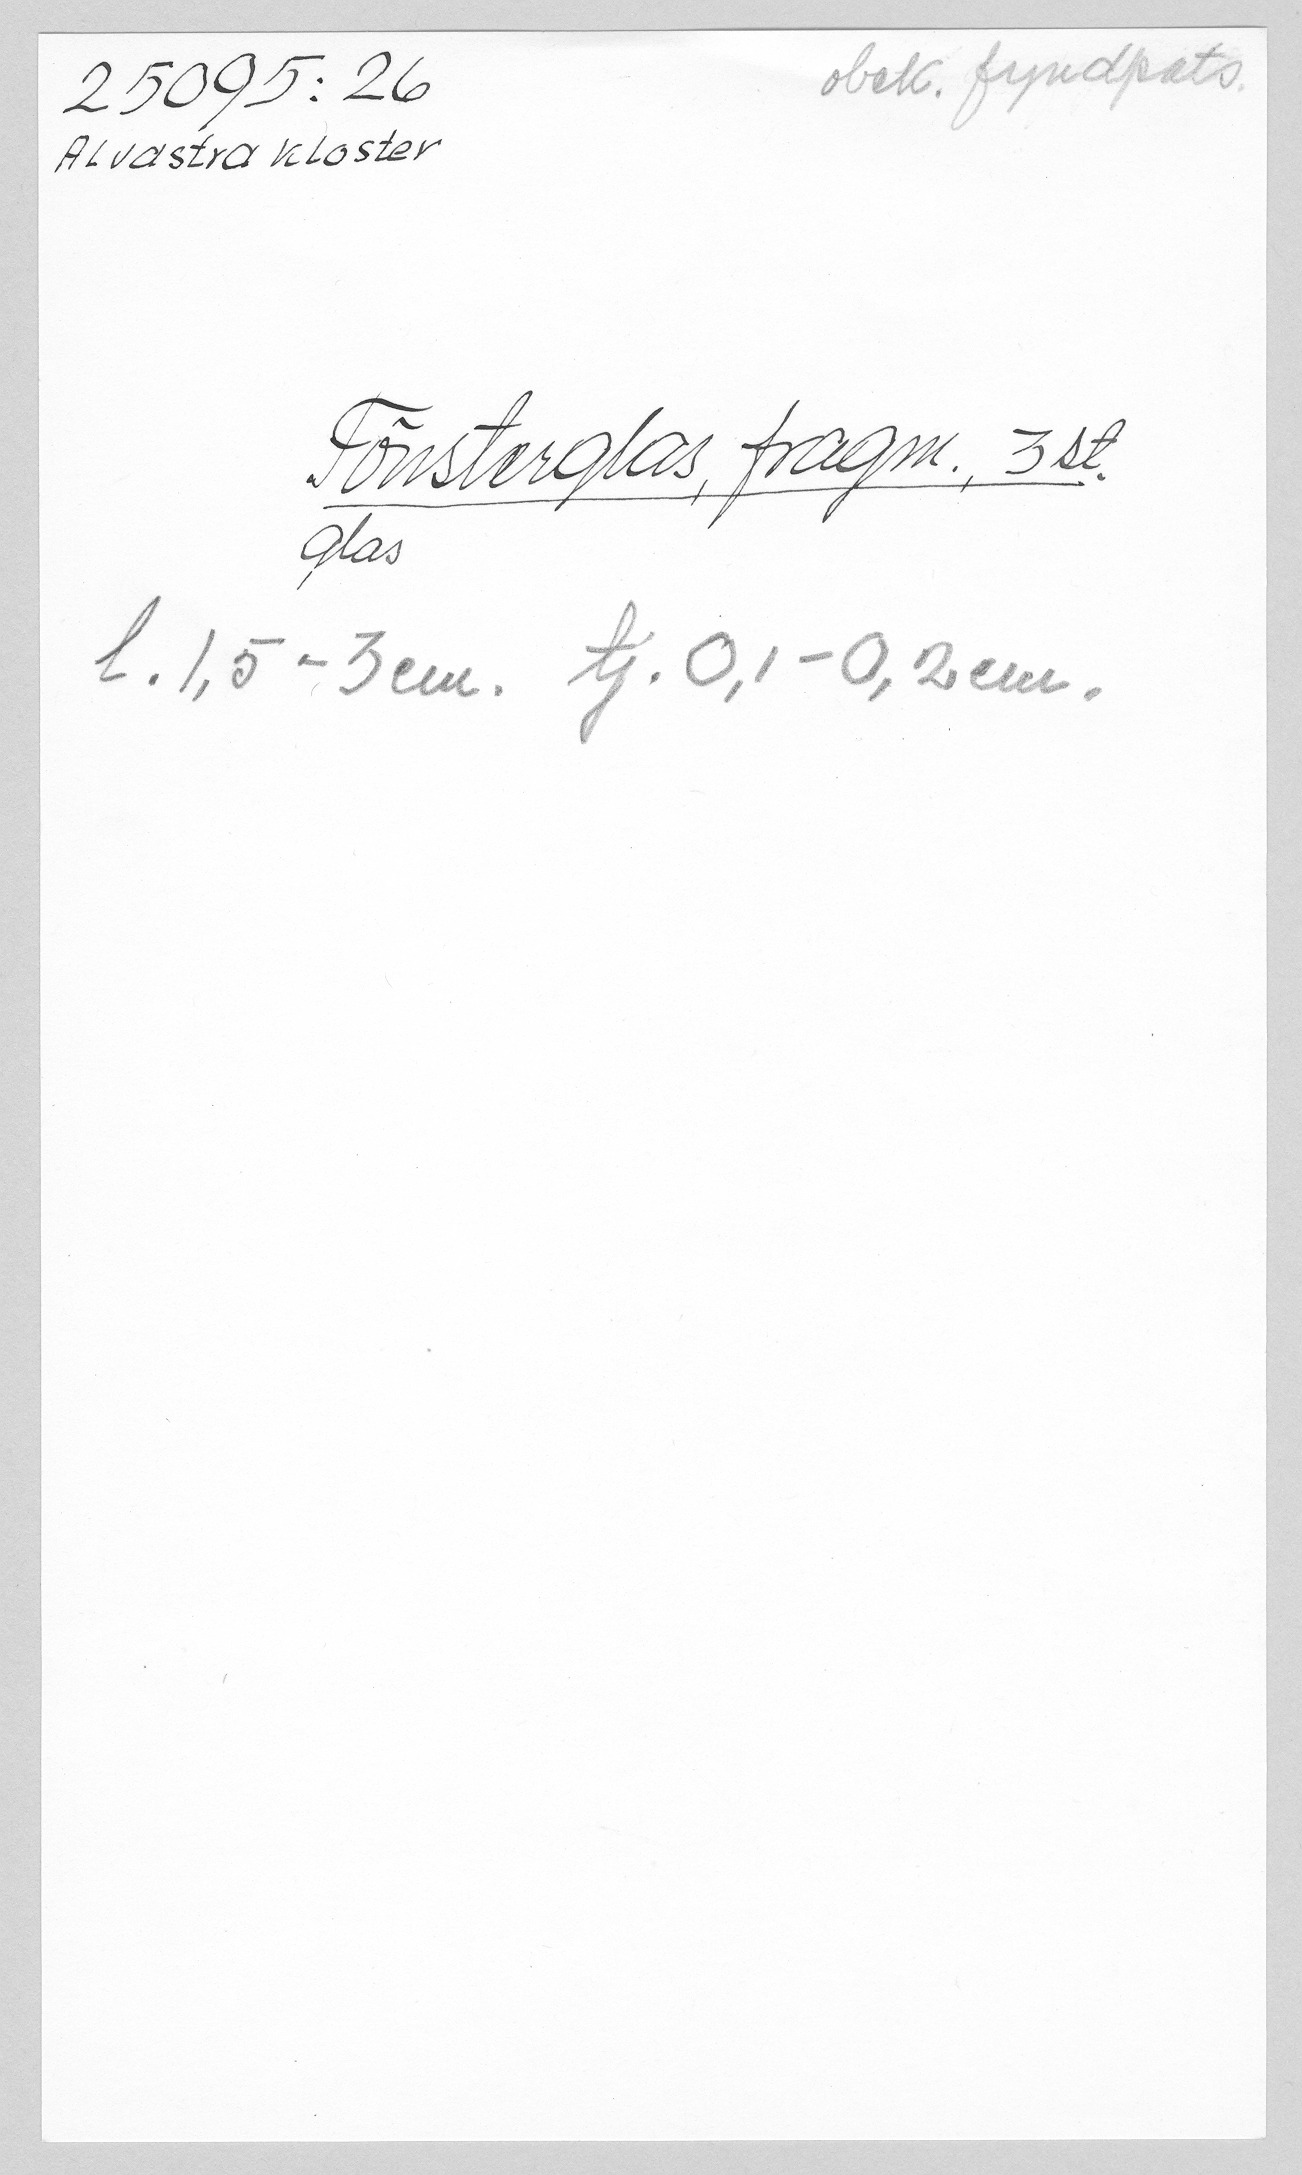 25095:26
obek. fyndpats.
Alvastra kloster
Fönsterglas, fragm., 3 st.
glas
l. 1,5-3 cm. tj. 0,1-0,2 cm.